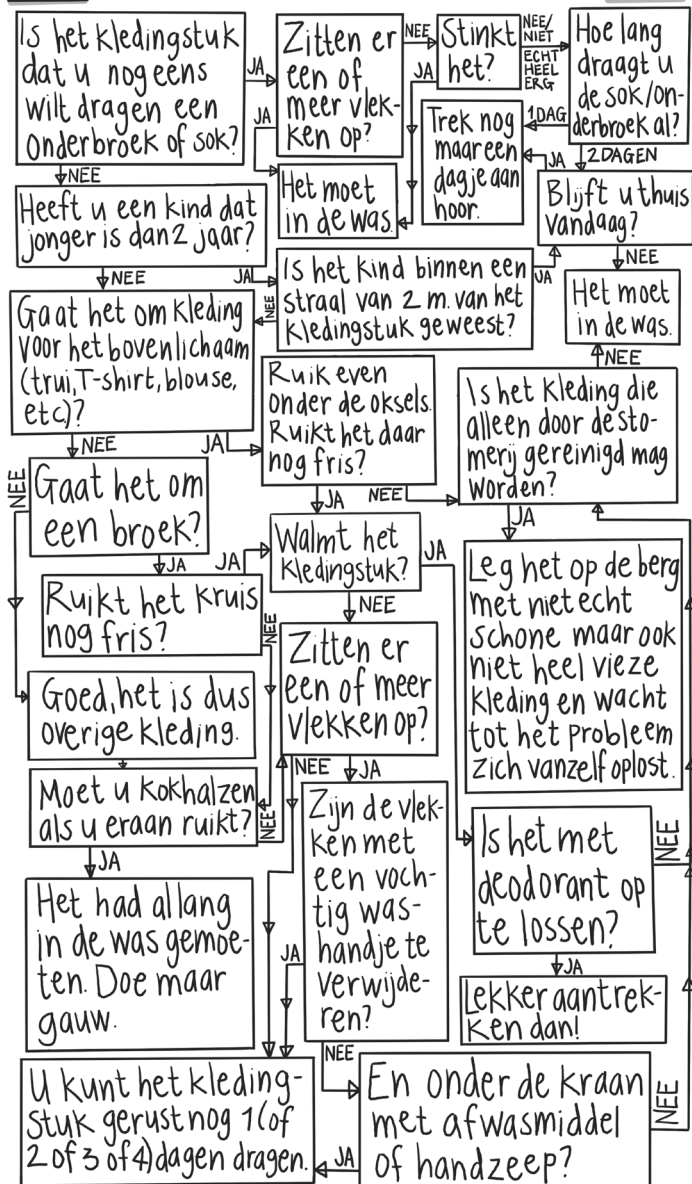 Is het kledingstuk
dat u nog eens
wilt dragen een
onderbroek of sok?
JA
NEE
Zitten er
een of
meer vlek-
ken op?
NEE
JA
Stinkt
het?
NEE/
NIET
ECHT
HEEL
ERG
JA
Hoe lang
draagt u
de sok/on-
derbroek al?
1 DAG
2 DAGEN
Trek nog
maar een
dagje aan
hoor.
Het moet
in de was.
JA
Blijft u thuis
vandaag?
NEE
Het moet
in de was.
Heeft u een kind dat
jonger is dan 2 jaar?
NEE
JA
Is het kind binnen een
straal van 2 m. van het
kledingstuk geweest?
JA
NEE
Gaat het om kleding
voor het bovenlichaam
(trui, T-shirt, blouse,
etc)?
NEE
JA
Ruik even
onder de oksels.
Ruikt het daar
nog fris?
JA
NEE
NEE
Is het kleding die
alleen door de sto-
merij gereinigd mag
worden?
JA
Gaat het om
een broek?
NEE
JA
Ruikt het kruis
nog fris?
JA
NEE
Walmt het
kledingstuk?
JA
NEE
Leg het op de berg
met niet echt
schone maar ook
niet heel vieze
kleding en wacht
tot het probleem
zich vanzelf oplost.
Goed, het is dus
overige kleding.
Zitten er
een of meer
vlekken op?
NEE
JA
Moet u kokhalzen
als u eraan ruikt?
NEE
JA
Het had allang
in de was gemoe-
ten. Doe maar
gauw.
Zijn de vlek-
ken met
een voch-
tig was-
handje te
verwijde-
ren?
JA
NEE
Is het met
deodorant op
te lossen?
NEE
JA
Lekker aantrek-
ken dan!
U kunt het kleding-
stuk gerust nog 1 (of
2 of 3 of 4) dagen dragen.
En onder de kraan
met afwasmiddel
of handzeep?
JA
NEE